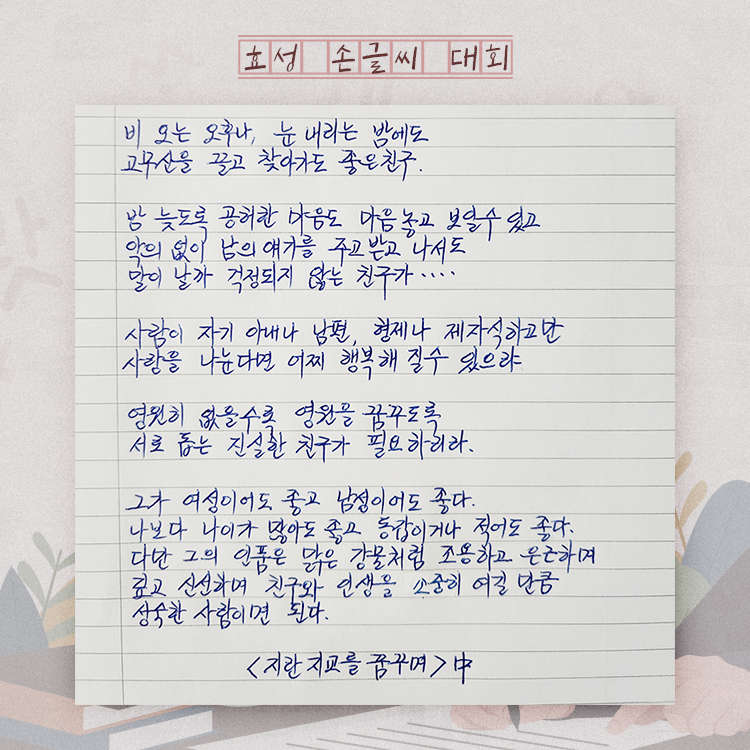 효성 손글씨 대회
비 오는 오후나, 눈 내리는 밤에도
고무신을 끌고 찾아가도 좋은친구.
밤 늦도록 공허한 마음도 마음놓고 보일수 있고
악의 없이 남의 얘기를 주고받고 나서도
말이 날까 걱정되지 않는 친구가····
사람이 자기 아내나 남편, 형제나 제자식하고만
사랑을 나눈다면 어찌 행복해 질수 있으랴
영원히 없을수록 영원을 꿈꾸도록
서로 돕는 진실한 친구가 필요하리라.
그가 여성이어도 좋고 남성이어도 좋다.
나보다 나이가 많아도 좋고 동갑이거나 적어도 좋다.
다만 그의 인품은 맑은 강물처럼 조용하고 은근하며
깊고 신선하며 친구와 인생을 소중히 여길 만큼
성숙한 사람이면 된다.
<지란지교를 꿈꾸며> 中